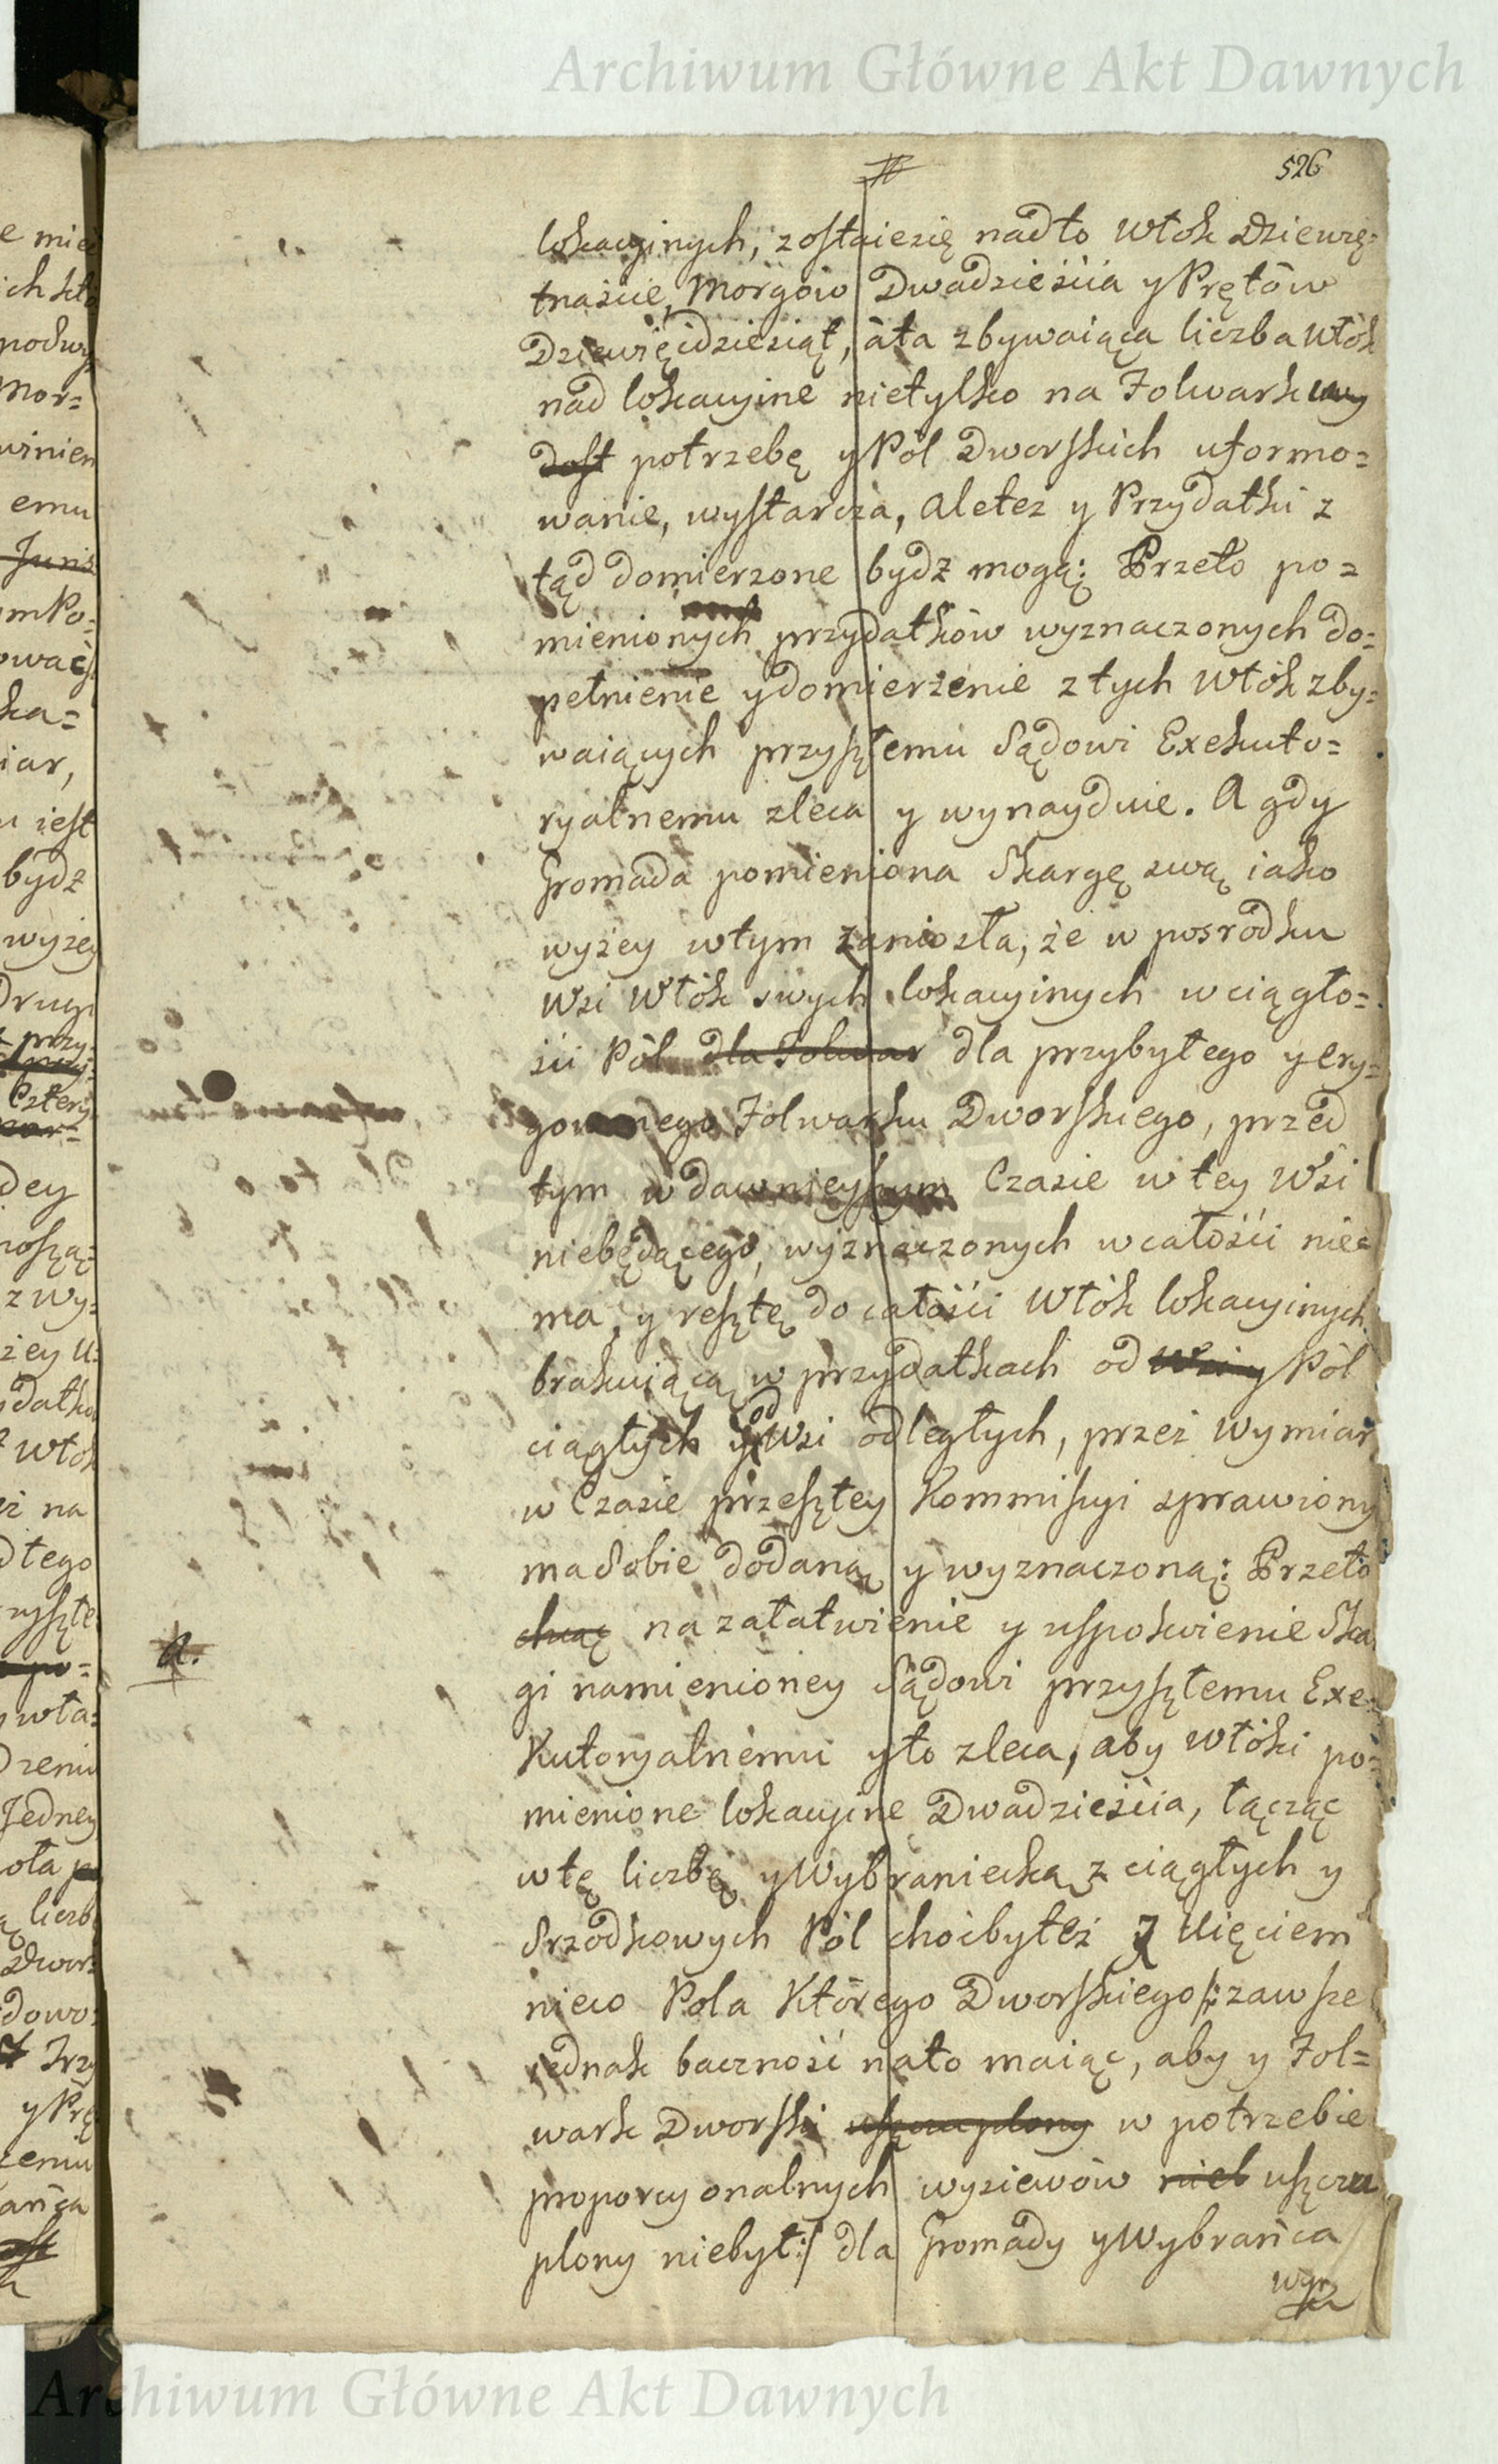 Archiwum Główne Akt Dawnych
526
lokacyinych, zostaiesię nadto Włok Dziewię=
tnaście, Morgow Dwadzieścia y Prętow
Dziewięćdziesiąt, ata zbywaiąca liczba Włok
nad lokacyine nietylko na Folwarkowy
dost potrzebę y Pól Dworskich uformo=
wanie, wystarcza, aleteż y Przydatki z
tąd domierzone bydź mogą: Przeto po=
mienionych przydatków wyznaczonych do=
pełnienie y domierzenie z tych Włok zby=
waiących przyszłemu Sądowi Exekuto=
ryalnemu zleca y wynayduie. A gdy
Gromada pomieniona Skargę swą iako
wyżey wtym zaniosła, że w posrodku
Wsi Włok swych lokacyinych w ciągło=
ści Pól dla Folwar dla przybyłego y ery=
gowanego Folwarku Dworskiego, przed
tym w dawnieyszym Czasie w tey Wsi
niebędącego, wyznaczonych w całości nie=
ma, y resztę do całości Włok lokacyinych
brakuiącą w przydatkach od Wsi y Pól
ciągłych y od Wsi odległych, przez Wymiar
w Czasie przeszłey Kommissyi sprawiony
ma Sobie dodaną y wyznaczoną: Przeto
chcąc na załatwienie y uspokoienie Ska
a.
gi namienioney Sądowi przyszłemu Exe=
kutoryalnemu y to zleca, aby Włóki po=
mienione lokacyine Dwadzieścia, łącząc
w tę liczbę y Wybraniecką z ciągłych y
Srzodkowych Pól choćbyteż z Uięciem
nieco Pola Którego Dworskiego /: zawsze
iednak baczność nato maiąc, aby y Fol=
wark Dworski uszczuplony w potrzebie
proporcyonalnych wysiewów nieb uszczu
plony niebył :/ dla Gromady y Wybrańca
wy
Archiwum Główne Akt Dawnych